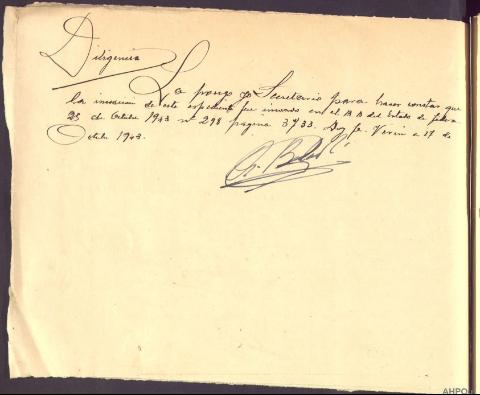 Diligencia
La pongo yo Secretario para hacer constar que
la incoación de este expediente fue en el B. B. del Estado de fecha
25 de Octubre 1943 nº 298 página 3733. Doy fe. Verín a 27 de
Octubre 1943.
AHPO